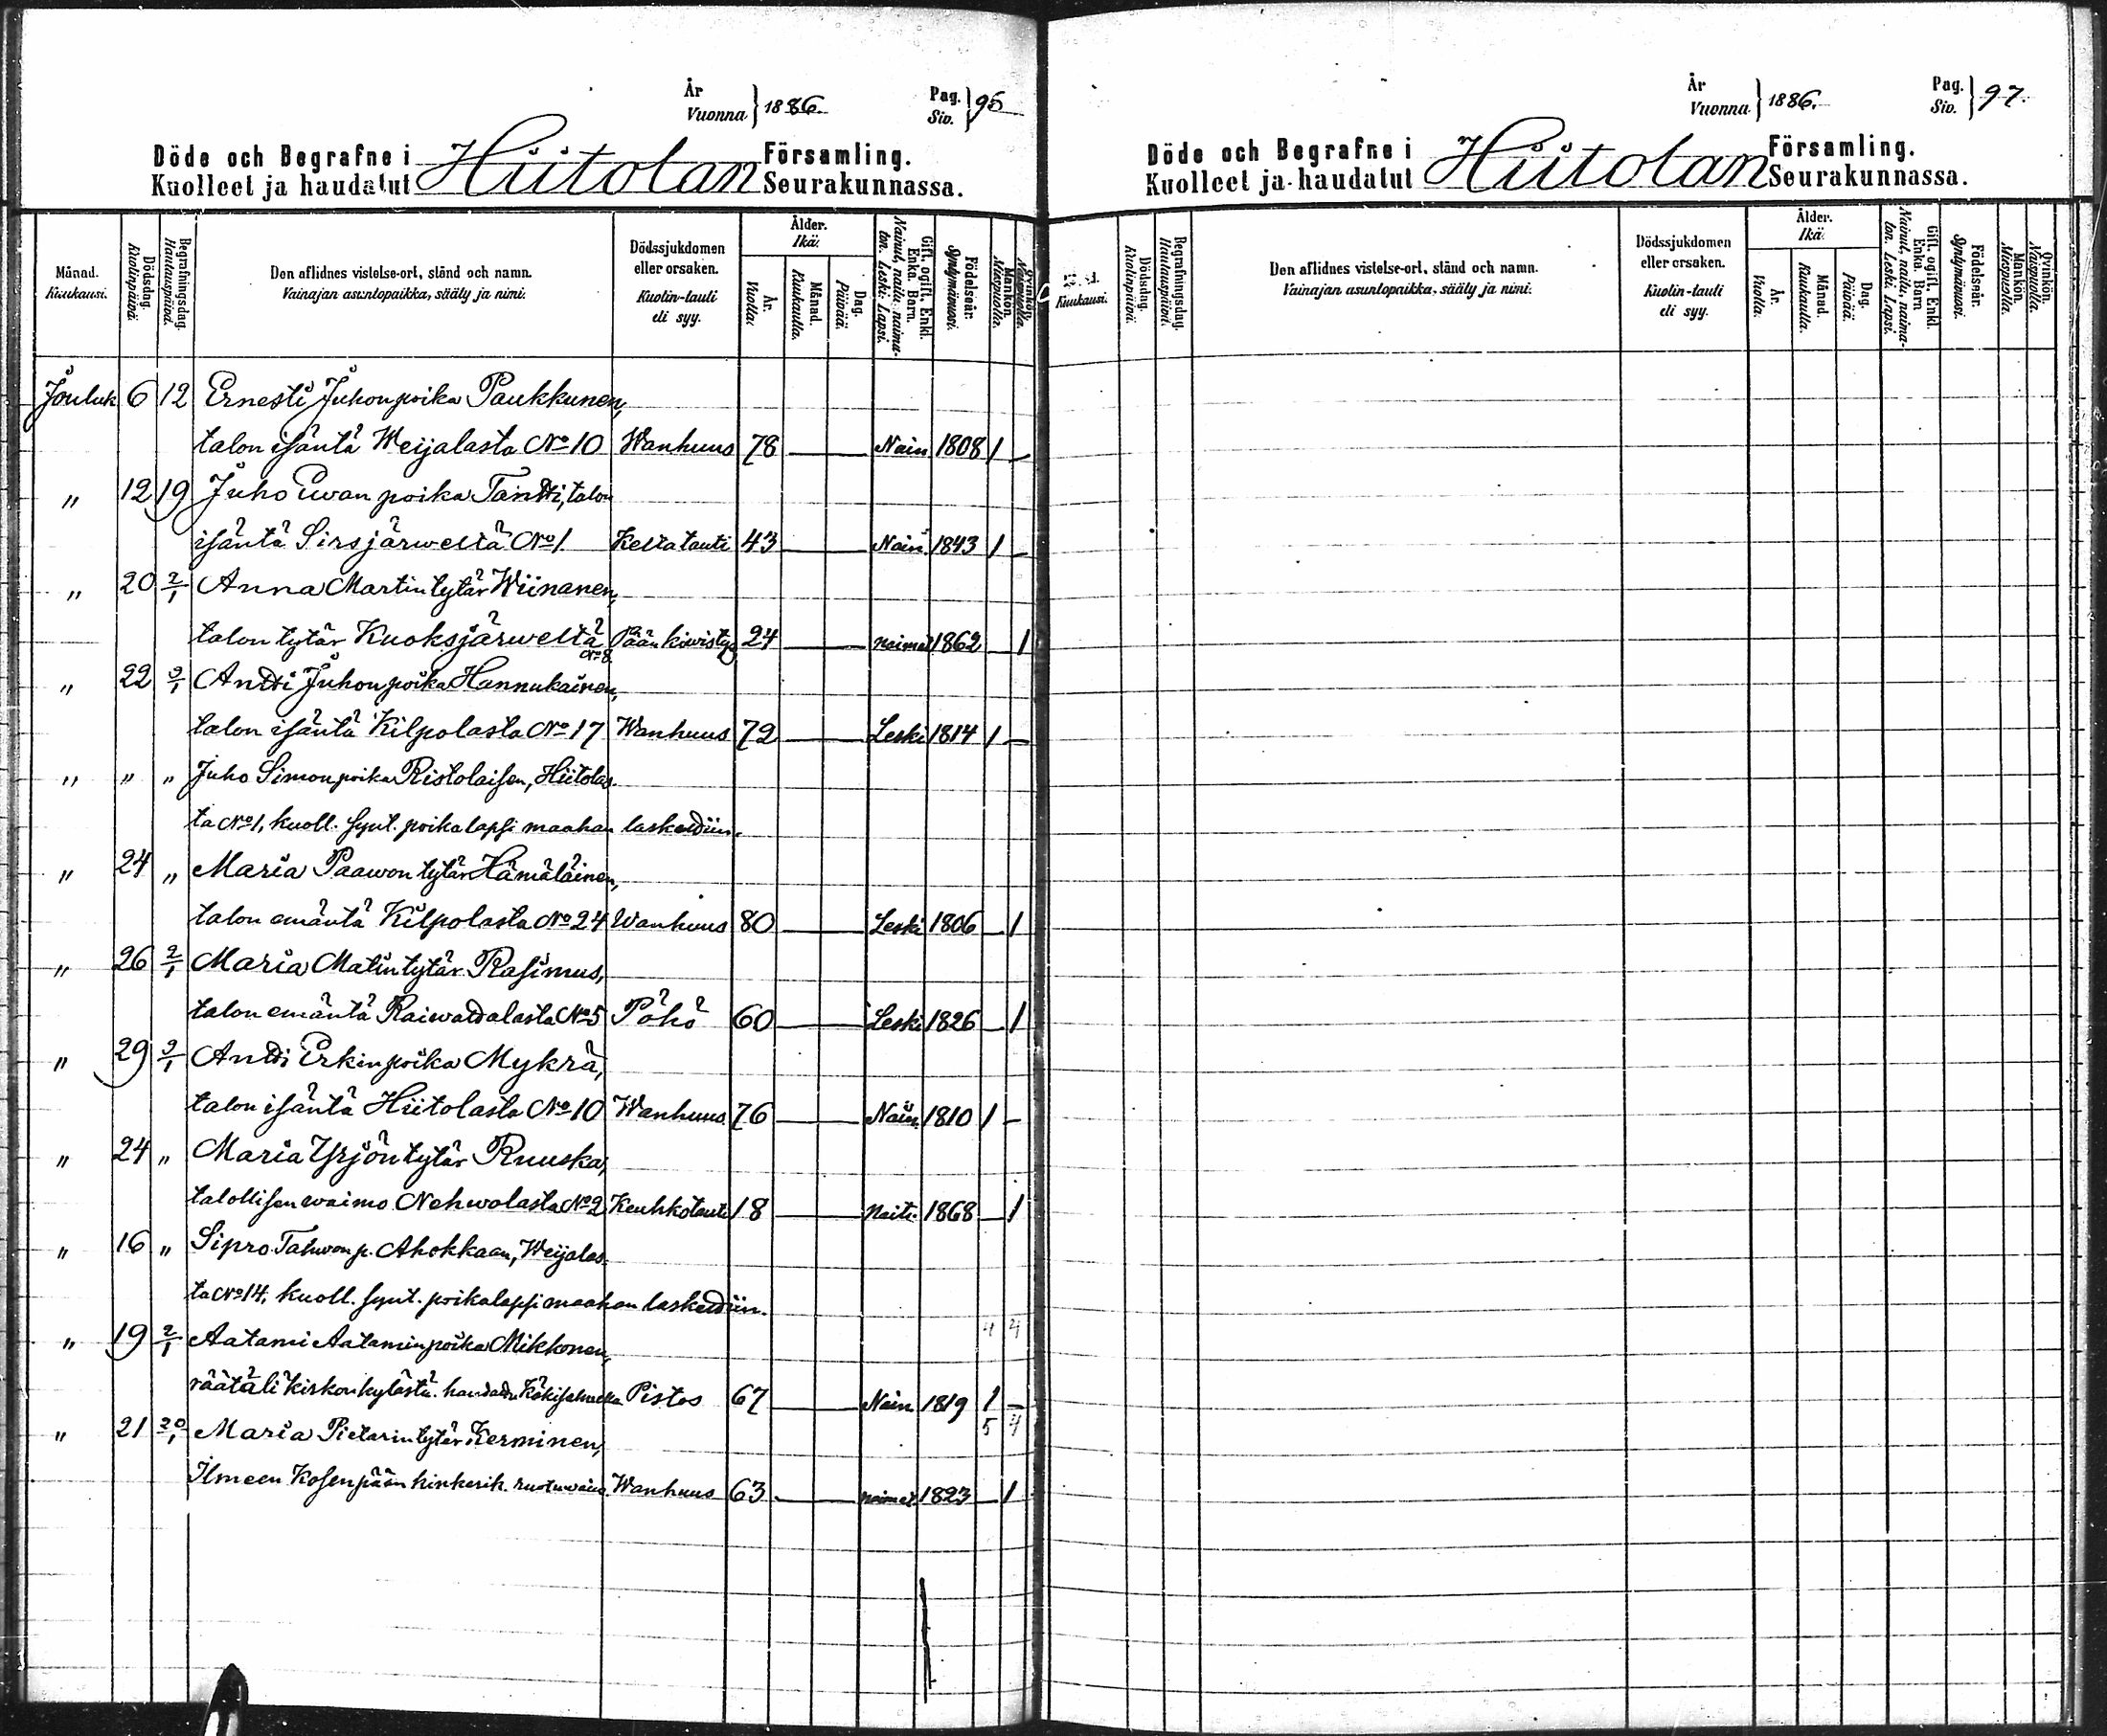 År Vuonna 1886. Pag. Siv. 95
Döde och Begrafne i Hiitolan Församling.
Kuolleet ja haudatut Seurakunnassa.
Månad. Kuukausi.
Dödsdag. Kuolinpäivä.
Begrafningsdag. Hautauspäivä.
Den aflidnes vistelse-ort, stånd och namn.
Vainajan asuntopaikka, sääty ja nimi.
Dödssjukdomen eller orsaken.
Kuolin-tauti eli syy.
Ålder. Ikä.
År. Vuotta.
Månad. Kuukautta.
Dag. Päivää.
Gift, ogift, Enkl. Enka. Barn.
Nainut, naitu, naimaton. Leski. Lapsi.
Födelseår. Syntymävuosi.
Mankön. Miespuolia.
Qvinkön. Naispuolia.
Jouluk 6 12 Ernesti Juhonpoika Paukkunen,
talon isäntä Weijalasta No 10 Wanhuus 78 Nain 1808 1 —
" 12 19 Juho Ewan poika Tantti, talon
isäntä Sirsjärweltä No 1. Keltatauti 43 Nain. 1843 1 —
" 20 2/1 Anna Martintytär Wiinanen,
talon tytär Kuoksjärweltä No 8 Pään kiwistys 24 naimat 1862 — 1
" 22 2/1 Antti Juhonpoika Hannukainen,
talon isäntä Kilpolasta No 17 Wanhuus 72 Leski 1814 1 —
" " " Juho Simonpoika Ristolaisen, Hiitolas-
ta No 1, kuoll. synt. poikalapsi maahan laskettiin.
" 24 " Maria Paawon tytär Hämäläinen,
talon emäntä Kilpolasta No 24 Wanhuus 80 Leski 1806 — 1
" 26 2/1 Maria Matintytär Rasimus,
talon emäntä Raiwattalasta No 5 Pöhö 60 Leski 1826 — 1
" 29 2/1 Antti Erkinpoika Mykrä,
talon isäntä Hiitolasta No 10 Wanhuus 76 Nain. 1810 1 —
" 24 " Maria Yrjöntytär Ruuska,
talollisen waimo Nehwolasta No 2 Keuhkotauti 18 Naitu 1868 — 1
" 16 " Sipro Tahwon p. Ahokkaan, Weijalas-
ta No 14, kuoll. synt. poikalapsi maahan laskettiin.
4 4
" 19 2/1 Aatami Aataminpoika Mikkonen,
räätäli kirkonkylästä. haudattu Käkisalmella Pistos 67 Nain 1819 1 —
5 4
" 21 20/1 Maria Pietarintytär Kerminen,
Ilmeen Kosenpään kinkerik. Wanhuus 63 naimat. 1823 — 1
År Vuonna 1886. Pag. Siv. 97.
Döde och Begrafne i Hiitolan Församling.
Kuolleet ja haudatut Seurakunnassa.
Kuukausi.
Dödsdag. Kuolinpäivä.
Begrafningsdag. Hautauspäivä.
Den aflidnes vistelse-ort, stånd och namn.
Vainajan asuntopaikka, sääty ja nimi.
Dödssjukdomen eller orsaken.
Kuolin-tauti eli syy.
Ålder. Ikä.
År. Vuotta.
Månad. Kuukautta.
Dag. Päivää.
Gift, ogift, Enkl. Enka. Barn
Nainut, naitu, naimaton. Leski. Lapsi.
Födelseår. Syntymävuosi.
Mankön. Miespuolia.
Qvinkön. Naispuolia.